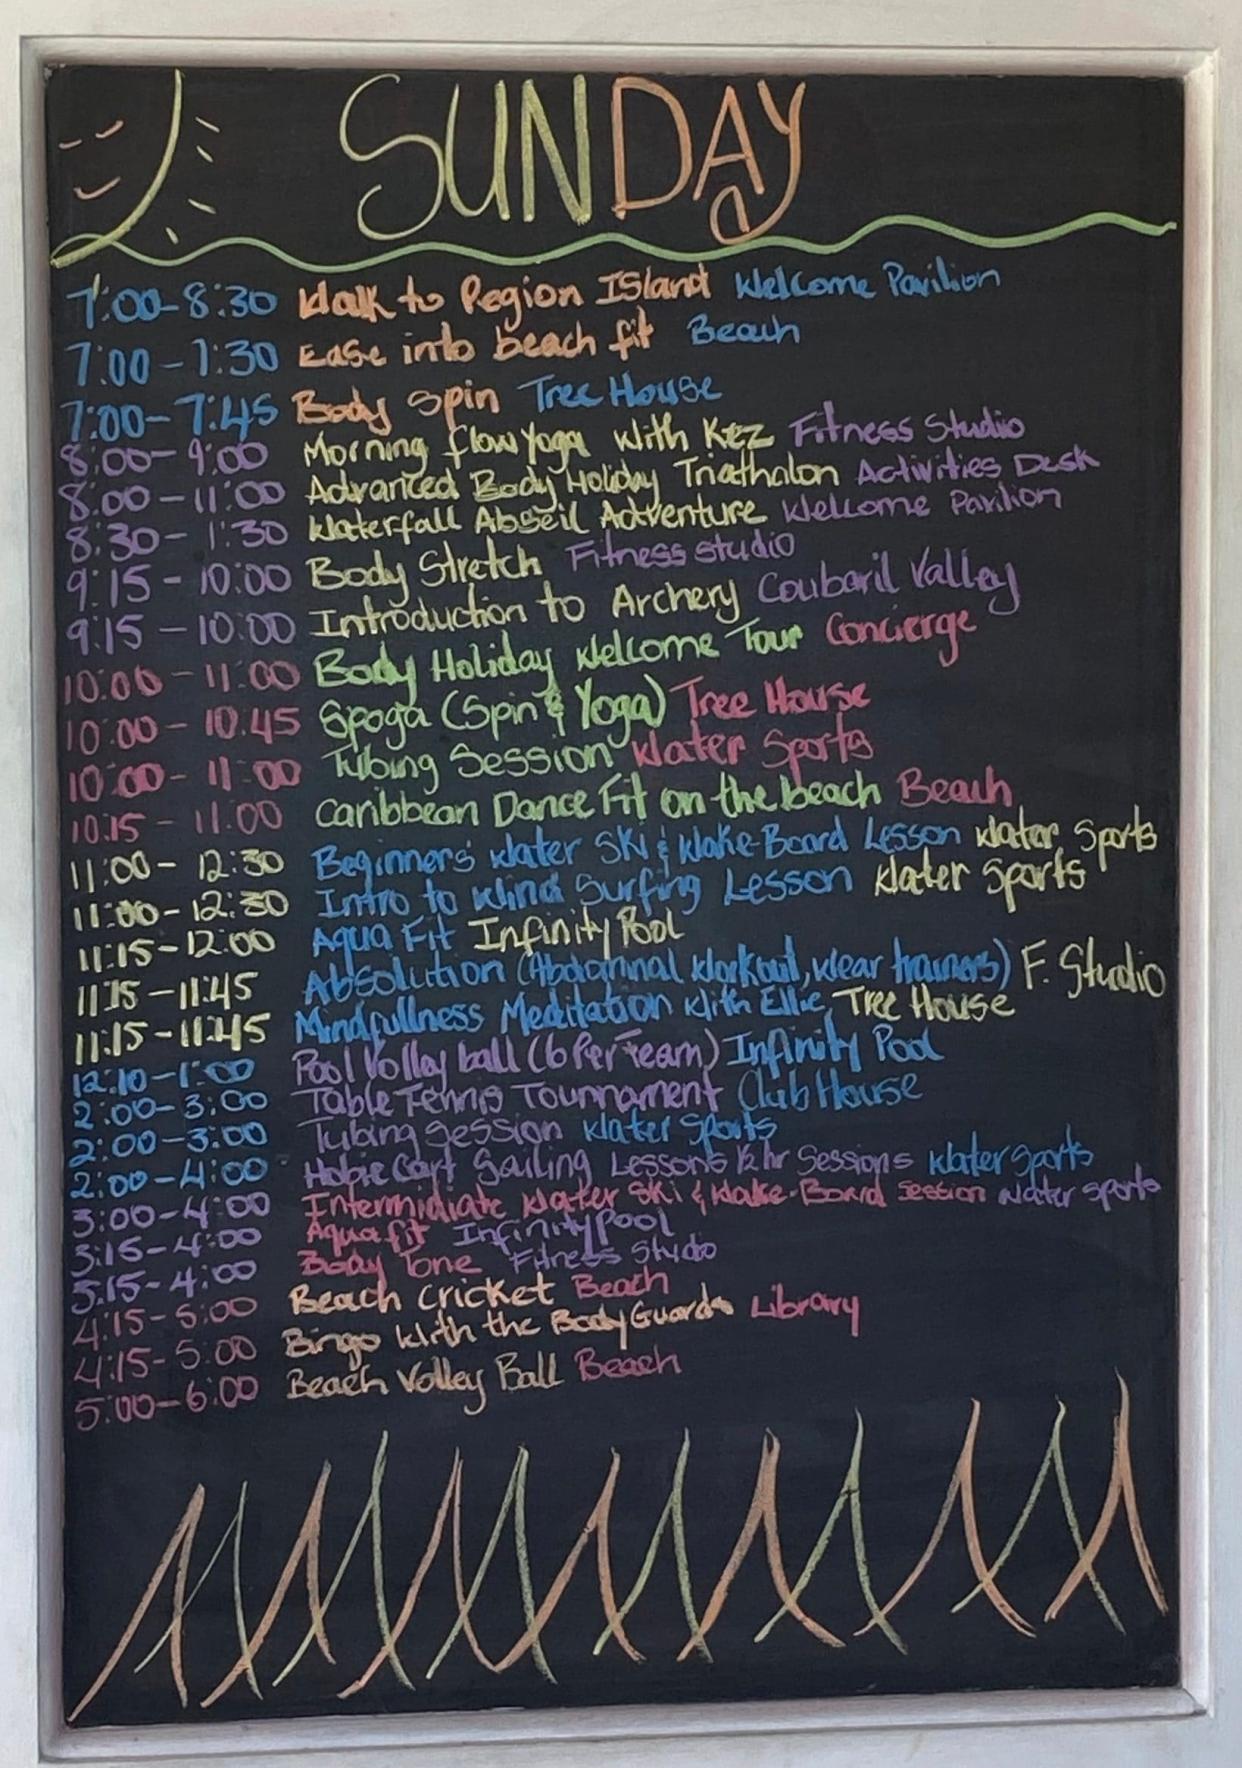 SUNDAY
7:00-8:30 Walk to Pegion Island Welcome Pavilion
7:00-7:30 Ease into beach fit Beach
7:00-7:45 Body Spin Tree House
8:00-9:00 Morning flow Yoga with Kez Fitness Studio
8:00-11:00 Advanced Body Holiday Triathalon Activities Desk
8:30-1:30 Waterfall Abseil Adventure Welcome Pavilion
9:15-10:00 Body Stretch Fitness studio
9:15-10:00 Introduction to Archery Coubaril Valley
10:00-11:00 Body Holiday Welcome Tour Concierge
10:00-10:45 Spoga (Spin & Yoga) Tree House
10:00-11:00 Tubing Session Water Sports
10:15-11:00 Caribbean Dance Fit on the beach Beach
11:00-12:30 Beginners Water Ski & Wake-Board Lesson Water Sports
11:00-12:30 Intro to Wind Surfing Lesson Water Sports
11:15-12:00 Aqua Fit Infinity Pool
11:15-11:45 Absolution (Abdominal Workout, wear trainers) F. Studio
11:15-11:45 Mindfullness Meditation With Ellie Tree House
12:10-1:00 Pool Volley ball (6 Per Team) Infinity Pool
2:00-3:00 Table Tennis Tournament Club House
2:00-3:00 Tubing Session Water Sports
2:00-4:00 Hobie Cart Sailing Lessons 1/2 hr Sessions Water Sports
3:00-4:00 Intermidiate Water Ski & Wake-Board Session Water Sports
3:15-4:00 Aqua fit Infinity Pool
3:15-4:00 Body Tone Fitness Studio
4:15-5:00 Beach Cricket Beach
4:15-5:00 Bingo With the BodyGuards Library
5:00-6:00 Beach Volley Ball Beach